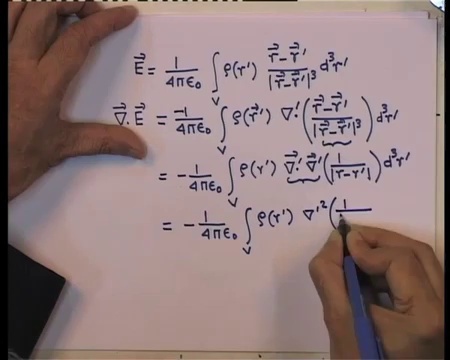 E⃗ = 1/4πε₀ ∫_V ρ(r') (r⃗-r⃗')/|r⃗-r⃗'|³ d³r'
∇⃗·E⃗ = -1/4πε₀ ∫_V ρ(r⃗') ∇⃗'·((r⃗-r⃗')/|r⃗-r⃗'|³) d³r'
= -1/4πε₀ ∫_V ρ(r') ∇⃗'·∇⃗'(1/|r⃗-r⃗'|) d³r'
= -1/4πε₀ ∫_V ρ(r') ∇'²(1/